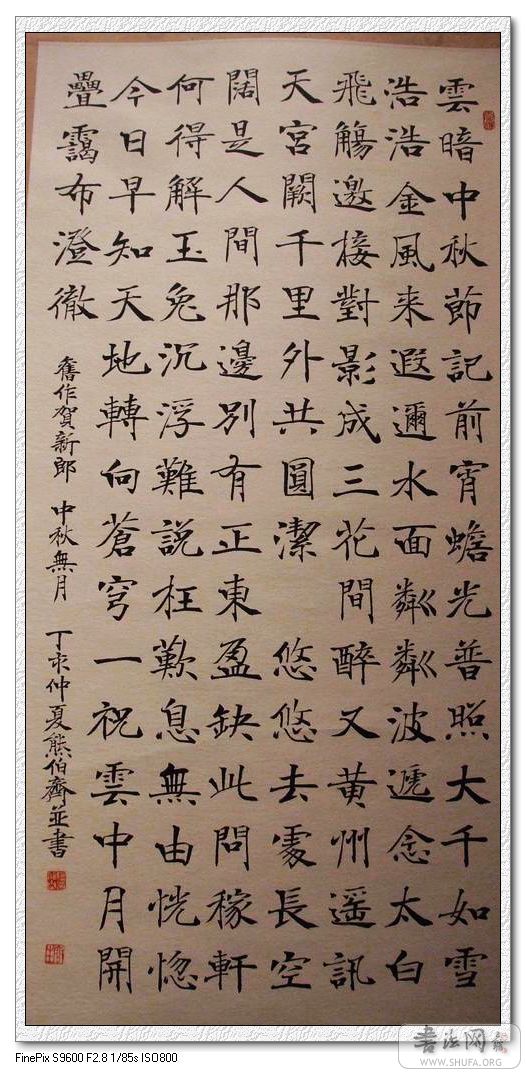 雲暗中秋節記前宵蟾光普照大千如雪
浩浩金風來遐邇水面粼粼波遞念太白
飛觴邀接對影成三花間醉又黄州遥訊
天宮闕千里外共圓潔 悠悠去處長空
闊是人間那邊别有正東盈缺此問稼軒
何得解玉兔沉浮難説枉歎息無由恍惚
今日早知天地轉向蒼穹一祝雲中月開
疊靄布澄徹
舊作賀新郎 中秋無月 丁亥仲夏熊伯齊並書
書法网
WWW.SHUFA.ORG
FinePix S9600 F2.8 1/85s ISO800